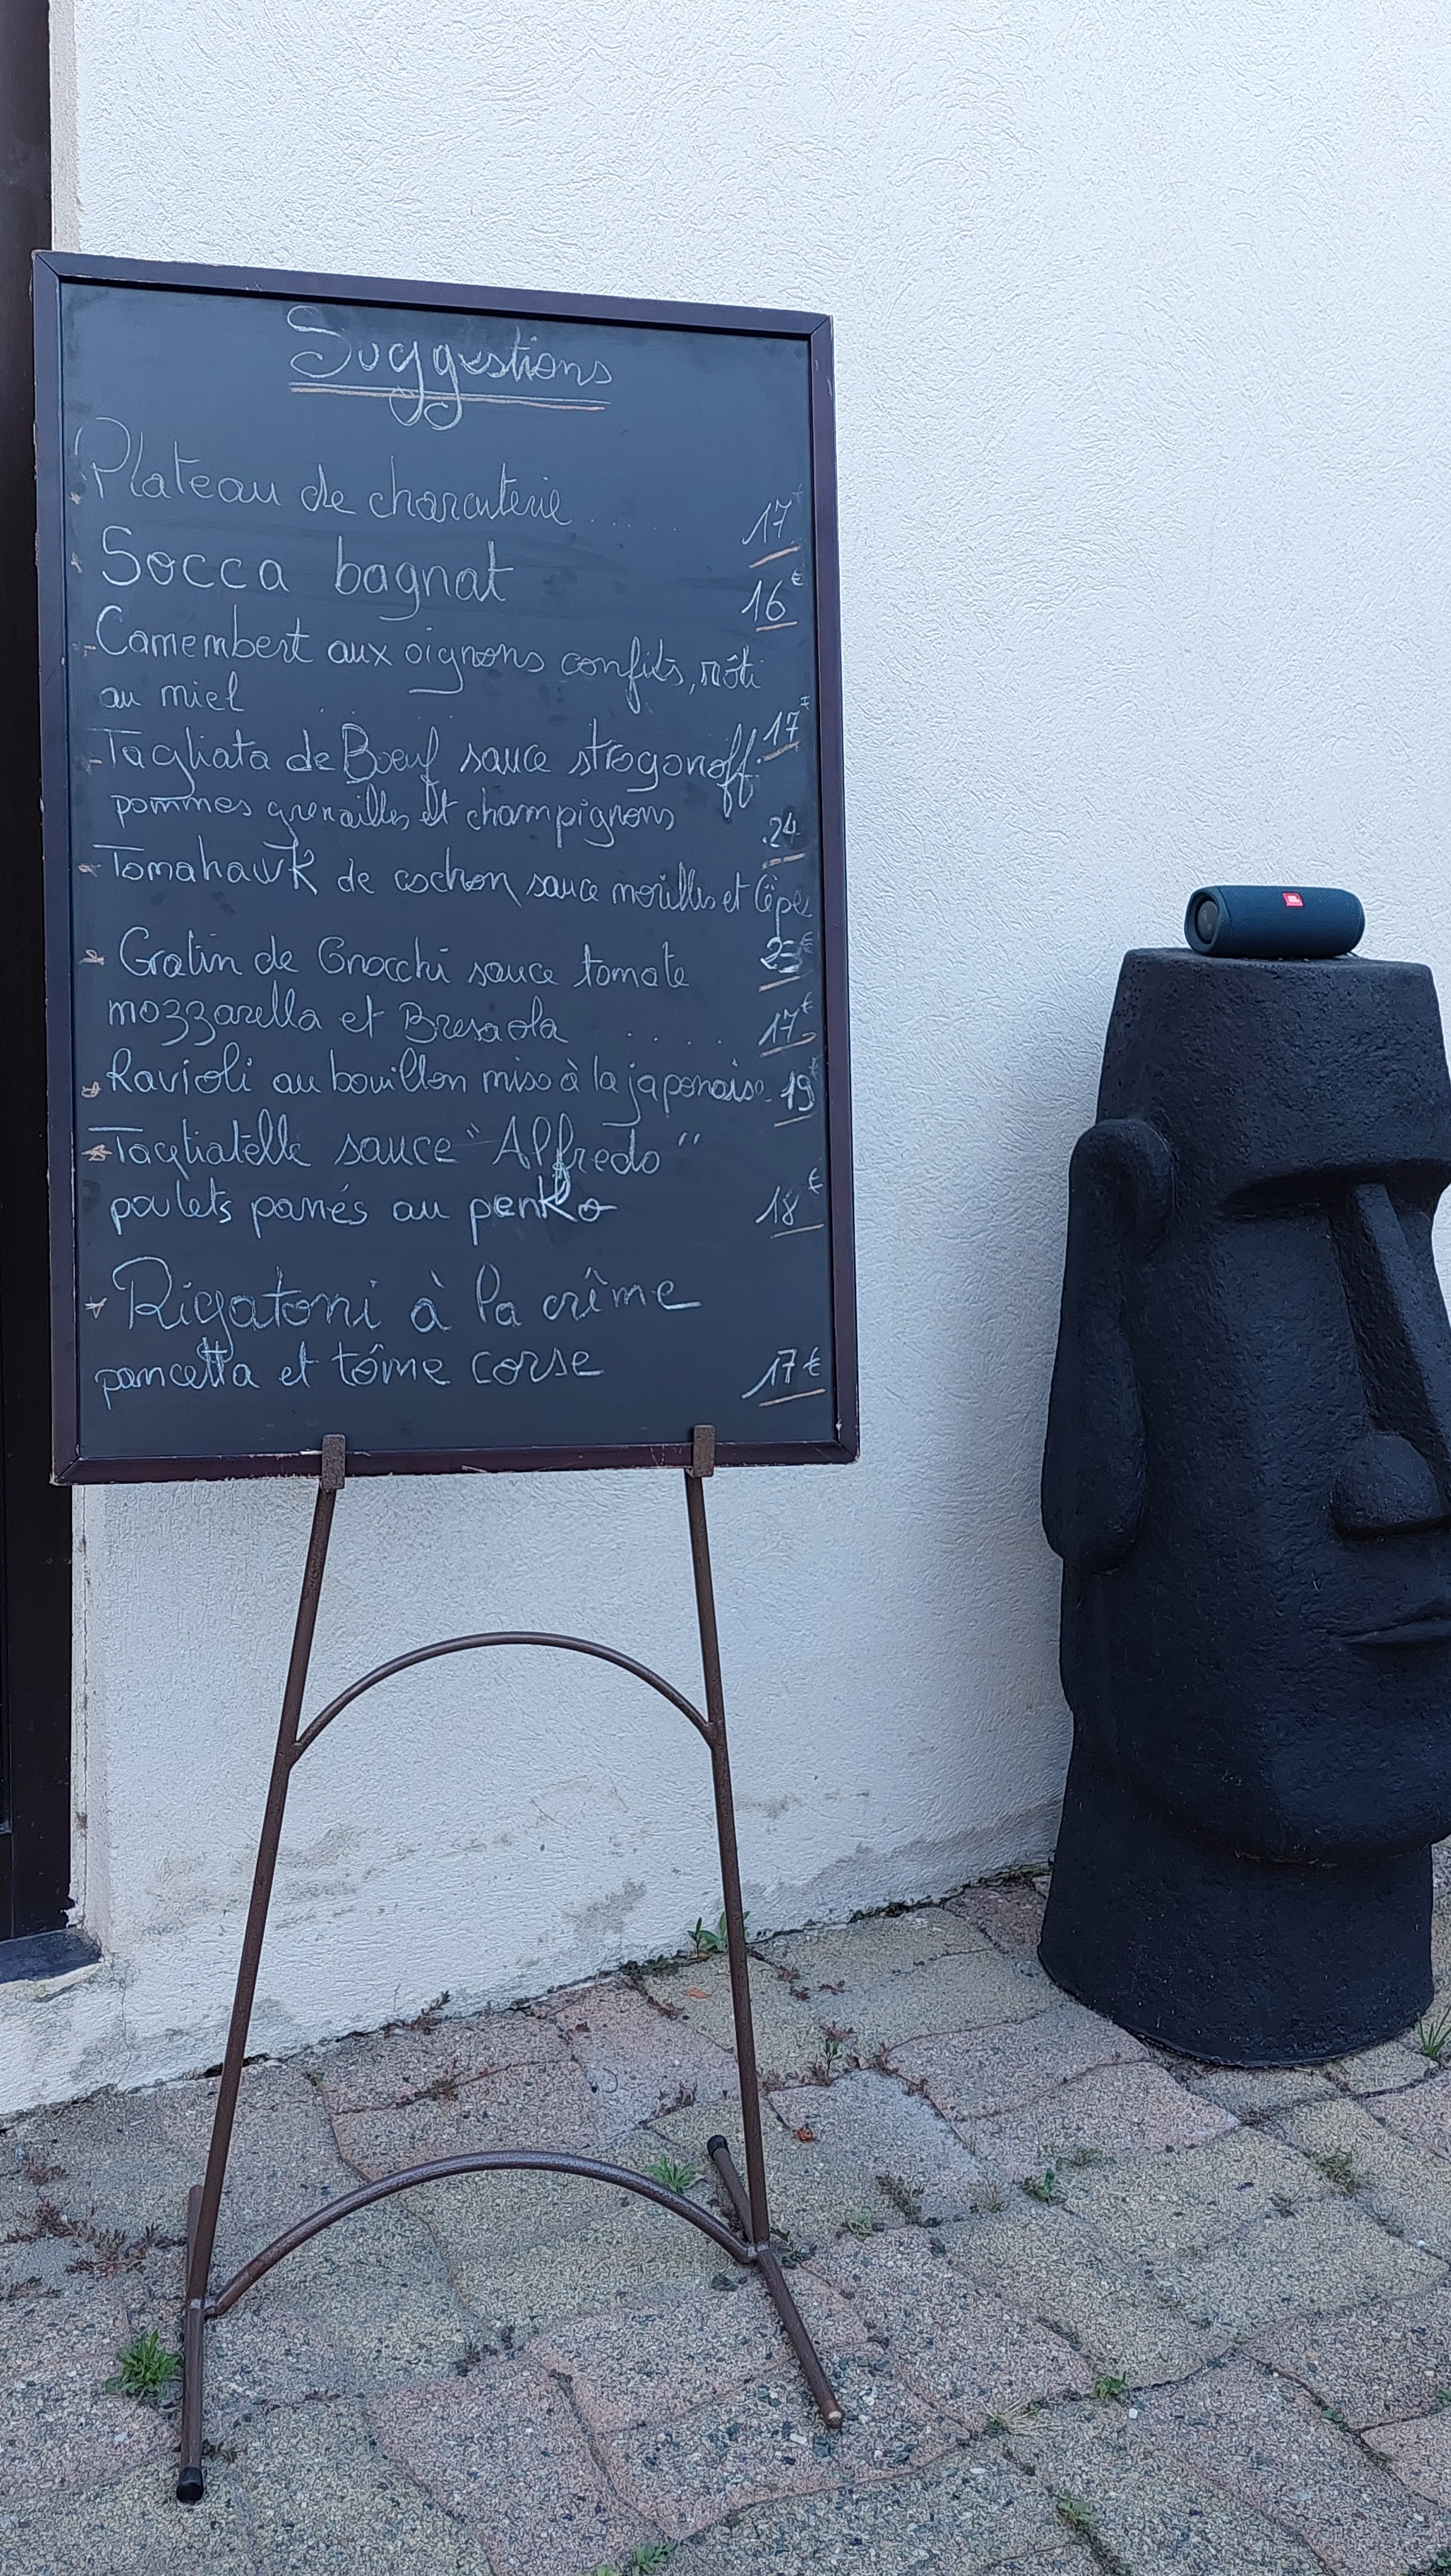 Suggestions
Plateau de charcuterie ...... 17
Socca bagnat 16€
Camembert aux oignons confits, rôti
au miel 17€
Tagliata de Boeuf sauce strogonoff
pommes grenailles et champignons 24
Tomahawk de cochon sauce morilles et Cèpes
Gratin de Gnocchi sauce tomate
mozzarella et Bresaola ..... 17€
Ravioli au bouillon miso à la japonaise. 19€
Tagliatelle sauce "Alfredo"
poulets panés au penko 18€
Rigatoni à la crême
pancetta et tôme corse 17€
JBL